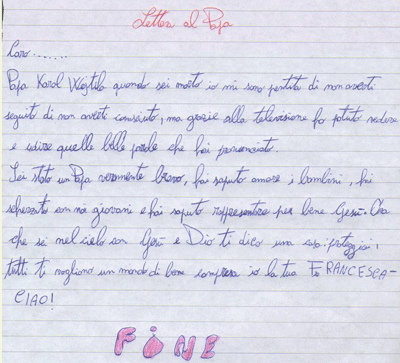 Lettera al Papa
Caro........
Papa Karol Wojtila quando sei morto io mi sono pentita di non averti
seguito di non averti conosciuto, ma grazie alla televisione ho potuto vedere
e udire quelle belle parole che hai pronunciato.
Sei stato un Papa veramente bravo, hai saputo amare i bambini, hai
scherzato con noi giovani e hai saputo rappresentare per bene Gesù. Ora
che sei nel cielo con Gesù e Dio ti dico una cosa: proteggici,
tutti ti vogliono un mondo di bene compresa io la tua FRANCESCA-
CIAO!
FINE